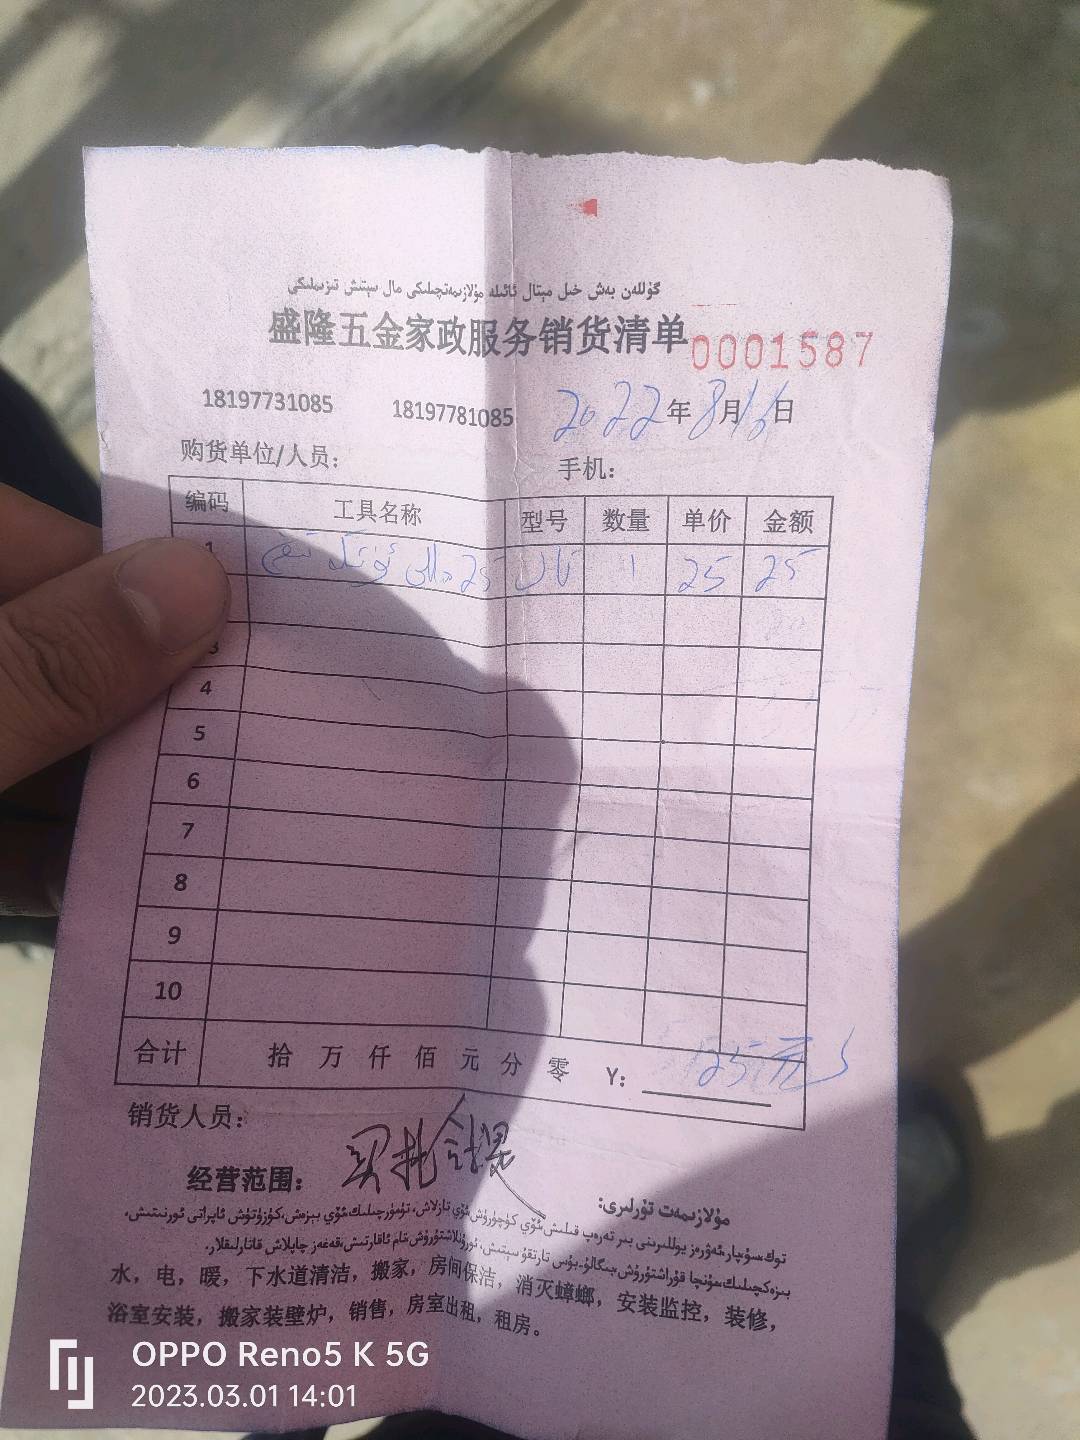 گۈللەن بەش خىل مېتال ئائىلە مۇلازىمەتچىلىكى مال سېتىش تىزىملىكى
盛隆五金家政服务销货清单 0001587
18197731085 18197781085 2022年8月16日
购货单位/人员: 手机:
编码 工具名称 型号 数量 单价 金额
1 25 1 25 25
3
4
5
6
7
8
9
10
合计 拾 万 仟 佰 元 分 零 Y: 25元
销货人员:
经营范围:
مۇلازىمەت تۈرلىرى:
توك،سۇ،پار،ئەۋرەز يوللىرىنى بىر تەرەپ قىلىش،ئۆي كۆچۈرۈش،ئۆي تازلاش، تۆمۈرچىلىك،ئۆي بېزەش،كۆزۈتۈش ئاپراتى ئورنىتىش،
بېزەكچىلىك،مۇنچا قۇراشتۇرۇش
水，电，暖，下水道清洁，搬家，房间保洁，消灭蟑螂，安装监控，装修，
浴室安装，搬家装壁炉，销售，房室出租，租房。
OPPO Reno5 K 5G
2023.03.01 14:01